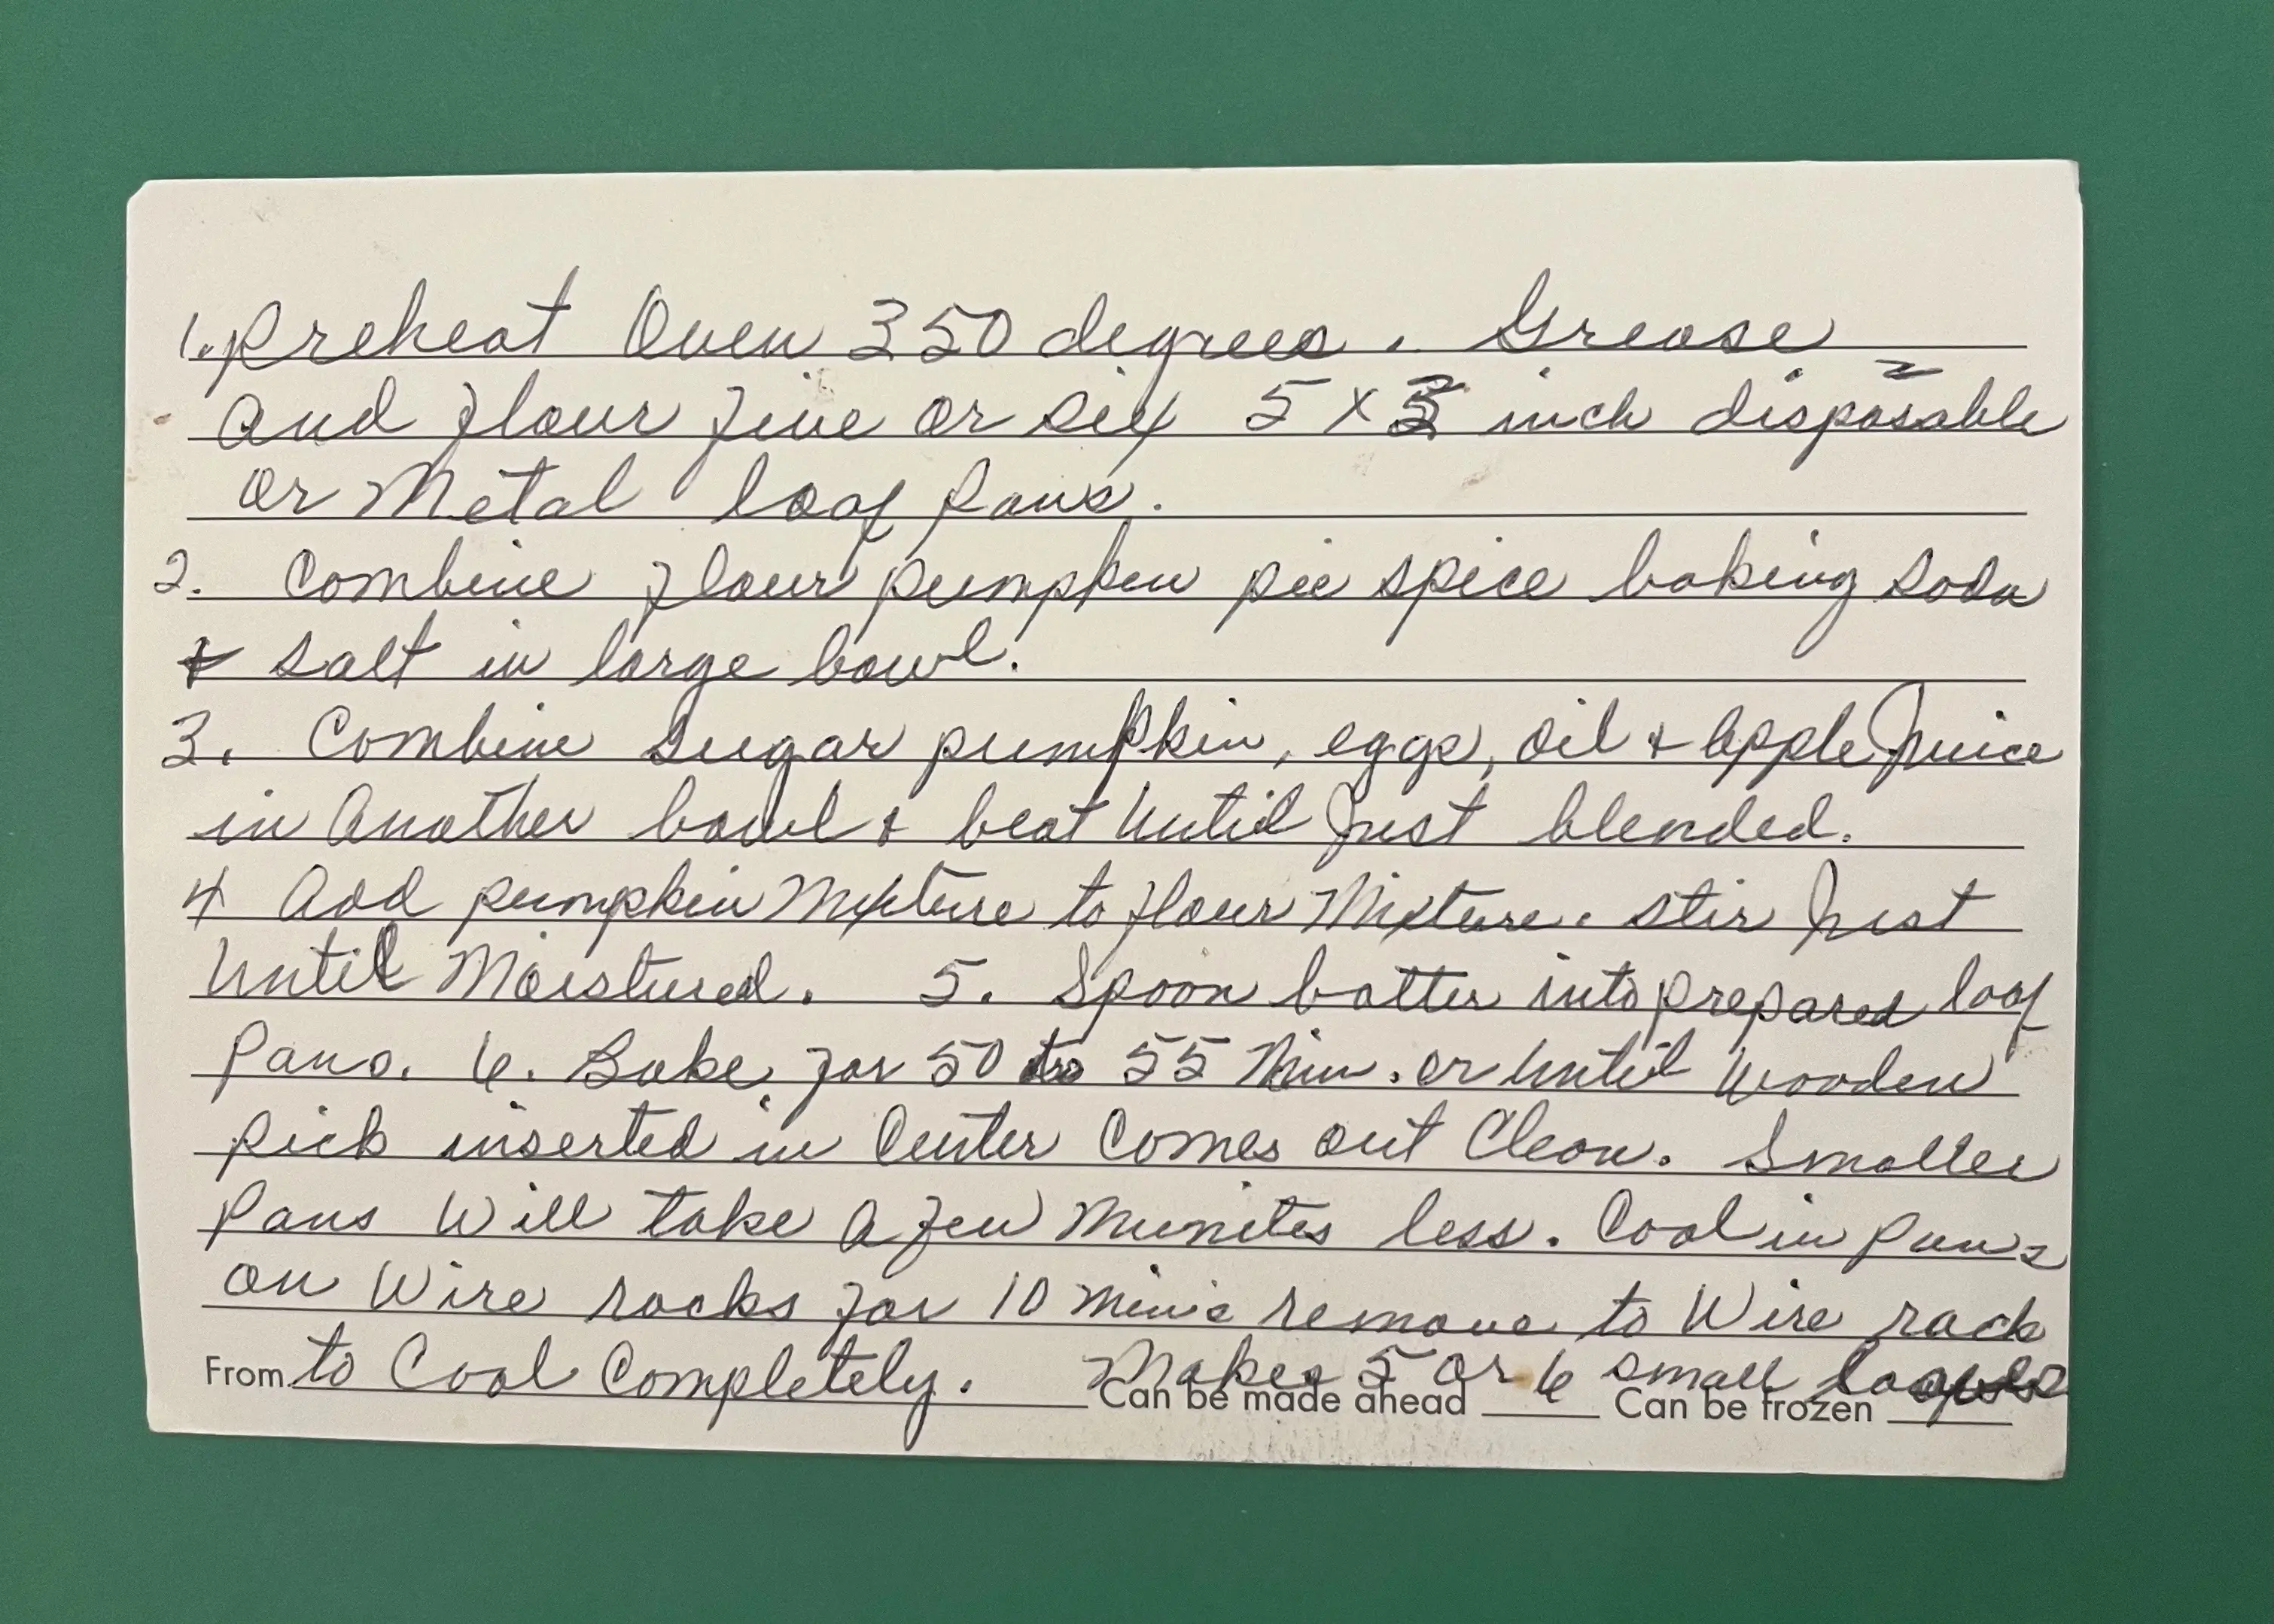 1. Preheat Oven 350 degrees. Grease
and flour five or six 5 x 3 inch disposable
or Metal loaf pans.
2. Combine flour pumpkin pie spice baking soda
& salt in large bowl.
3. Combine Sugar pumpkin, eggs, oil & Apple Juice
in Another bowl & beat Until Just blended.
4 Add pumpkin Mixture to flour Mixture. Stir Just
Until Moistured. 5. Spoon batter into prepared loaf
Pans. 6. Bake for 50 to 55 Min. or Until Wooden
pick inserted in Center Comes out Clean. Smaller
Pans Will take A few Munites less. Cool in Pans
on Wire racks for 10 Min's remove to Wire rack
From to Cool Completely. Makes 5 or 6 small
Can be made ahead Can be frozen